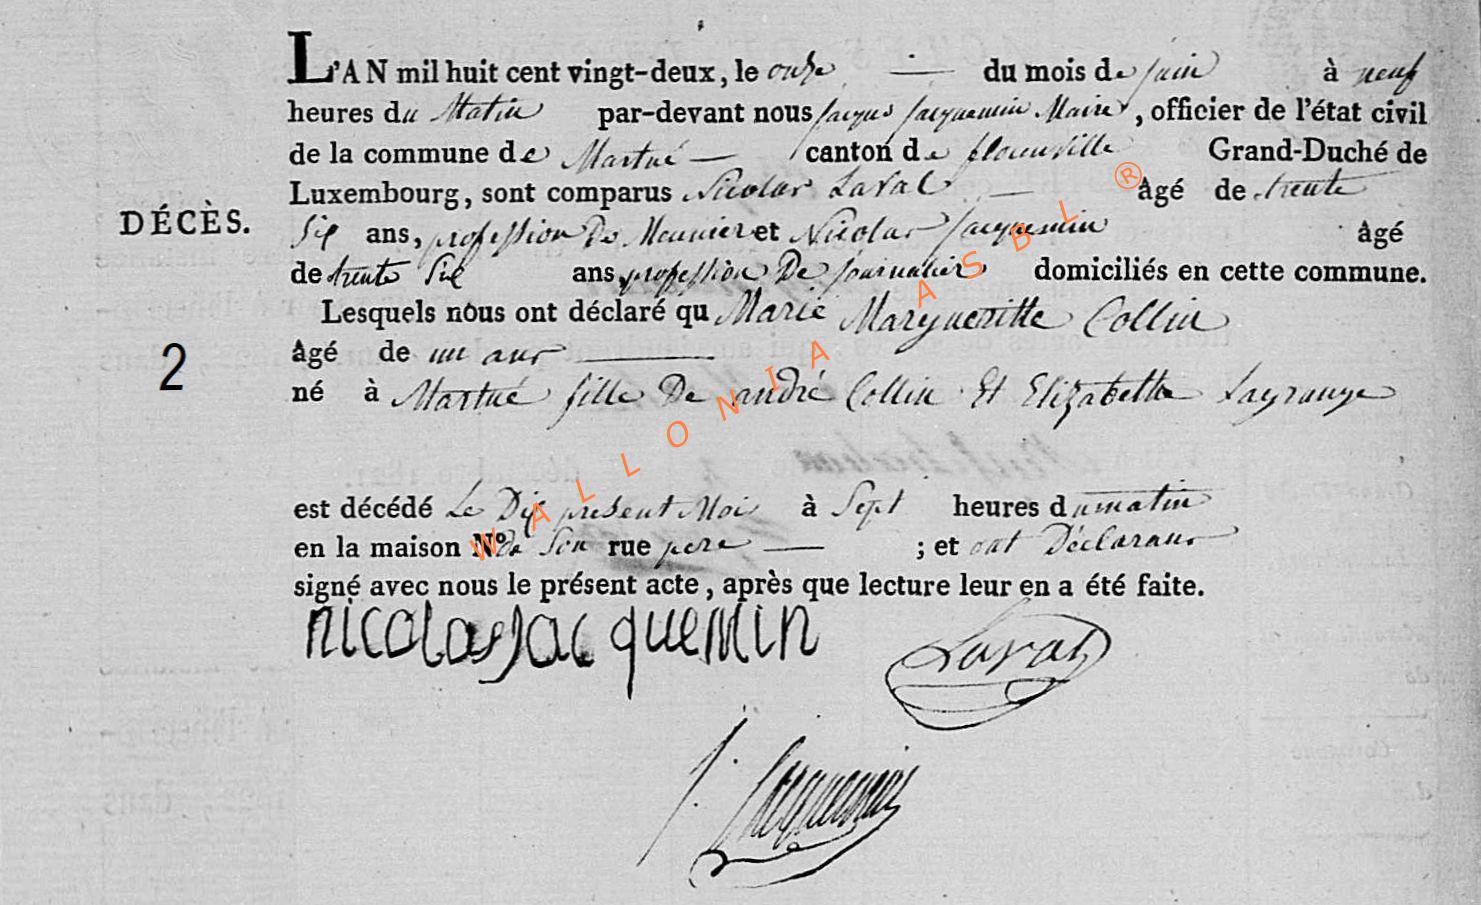 L'AN mil huit cent vingt-deux, le onze du mois de juin à neuf
heures du Matin par-devant nous Jacques Jacquemin Maire, officier de l'état civil
de la commune de Martué canton de florenville Grand-Duché de
Luxembourg, sont comparus Nicolas Laval âgé de trente
DÉCÈS.
Six ans, profession De Meunier et Nicolas Jacquemin âgé
de trente Six ans, profession De Journalier domiciliés en cette commune.
Lesquels nous ont déclaré qu Marie Margueritte Collin
2
âgé de un ans
né à Martué fille De andré Collin Et Elizabethe Lagrange
est décédé Le Dix présent Moi à Sept heures du matin
en la maison N° de Son rue pere ; et ont Déclarans
signé avec nous le présent acte, après que lecture leur en a été faite.
nicolas jacquemin Laval
J. Jacquemin
WALLONIA ASBL ®